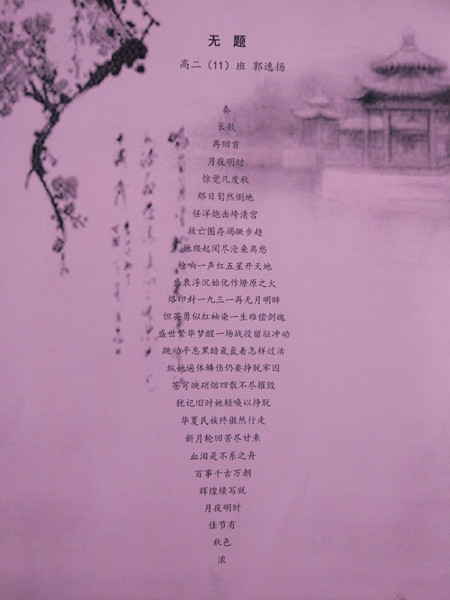 无 题
高二（11）班 郭逸扬
奏
长歌
再回首
月夜明时
惊觉几度秋
那日訇然倒地
任洋炮击垮清宫
救亡图存竭蹶步趋
她爬起阅尽沧桑离愁
枪响一声红五星开天地
盛衰浮沉始化作燎原之火
烙印封一九三一再无月明眸
但英勇似红袖染一生难偿剑魄
盛世繁华梦醒一场战役留驻冲动
跳动平息黑暗氤氲着怎样过活
纵她遍体鳞伤仍要挣脱牢囚
苍穹映硝烟四散不尽摧毁
犹记旧时她轻唤以挣脱
华夏民族终傲然行走
新月轮回苦尽甘来
血泪是不系之舟
百事千古万朝
辉煌续写就
月夜明时
佳节有
秋色
浓